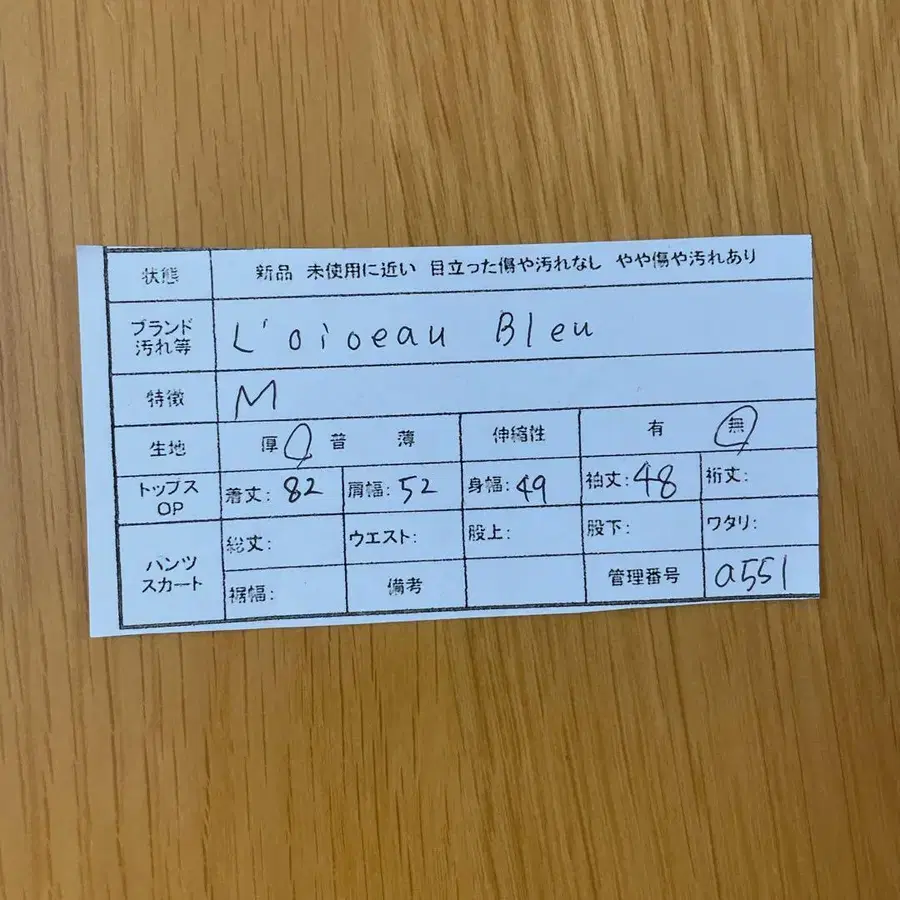 状態 新品 未使用に近い 目立った傷や汚れなし やや傷や汚れあり
ブランド
汚れ等
L'oioeau Bleu
特徴 M
生地 厚 普 薄 伸縮性 有 無
トップス
OP
着丈: 82 肩幅: 52 身幅: 49 袖丈: 48 裄丈:
パンツ
スカート
総丈: ウエスト: 股上: 股下: ワタリ:
裾幅: 備考 管理番号 a551